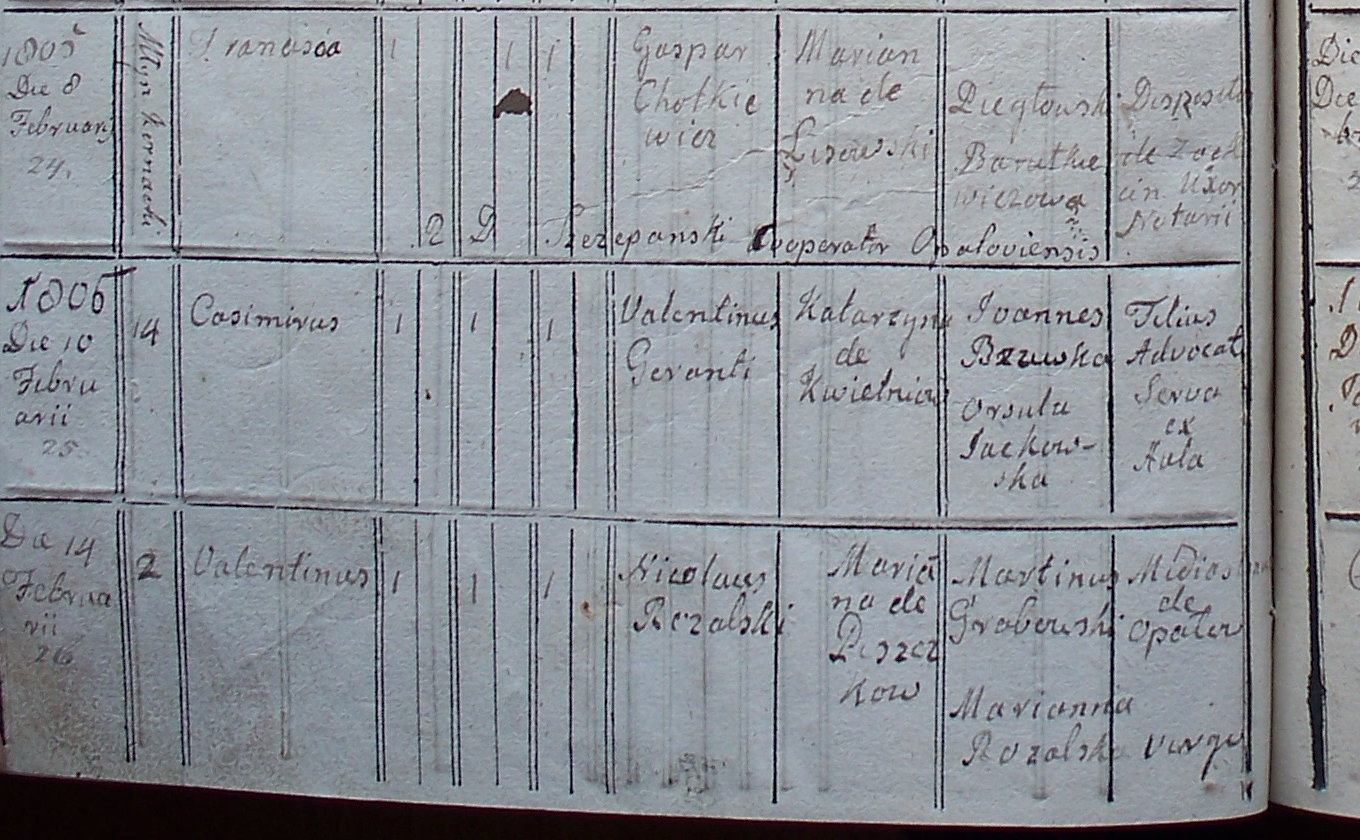 1805
Die 8
February
24.
Młyn Kornacki
Francisca
1 1 1
Gaspar
Chotkie
wicz
Marian
na de
Lisowski
Barutkie
wiczowa
de
Uxor
Notarii
R D Szczepanski Cooperator Opatoviensis
1806
Die 10
Febru
arii
25.
14
Casimirus
1 1 1
Valentinus
Geranti
Katarzyna
de
Joannes
Bzuwska
Orsula
Jackow-
ska
Filius
Advocat
Serva
ex
Aula
Die 14
Februa
rii
26
2
Valentinus
1 1 1
Nicolaus
Rozalski
Maria
na de
Piszcz
kow
Martinus
Grabowski
Marianna
Rozalska
de
Opatow
Virgo
Die
Die